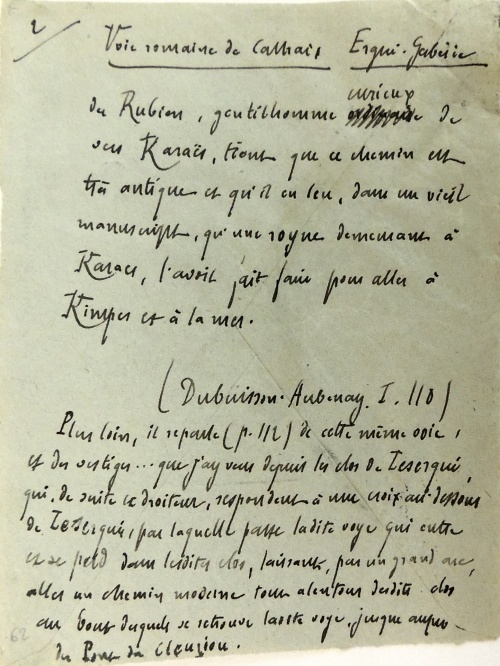 2
Voie romaine de Carhaix Ergué-Gabéric
du Rubien, gentilhomme curieux de
vers Karaës, tient que ce chemin est
très antique et qu'il en leu, dans un vieil
manuscript, qu'une royne demeurant à
Karaes, l'avoit fait faire pour aller à
Kimper et à la mer.
(Dubuisson-Aubenay. I. 110)
Plus loin, il reparle (p. 112) de cette même voie,
et des vestiges... que j'ay veus depuis les clos de
qui, de suite et droiteur, respondent à une croix au-dessous
de par laquelle passe ladite voye qui entre
et se perd dans lesdites clos, laissant, par un grand arc,
aller un chemin moderne tout alentour desdits clos
au bout desquels se retrouve ladite voye, jusque auprès
du Pont du Cleuziou.
62